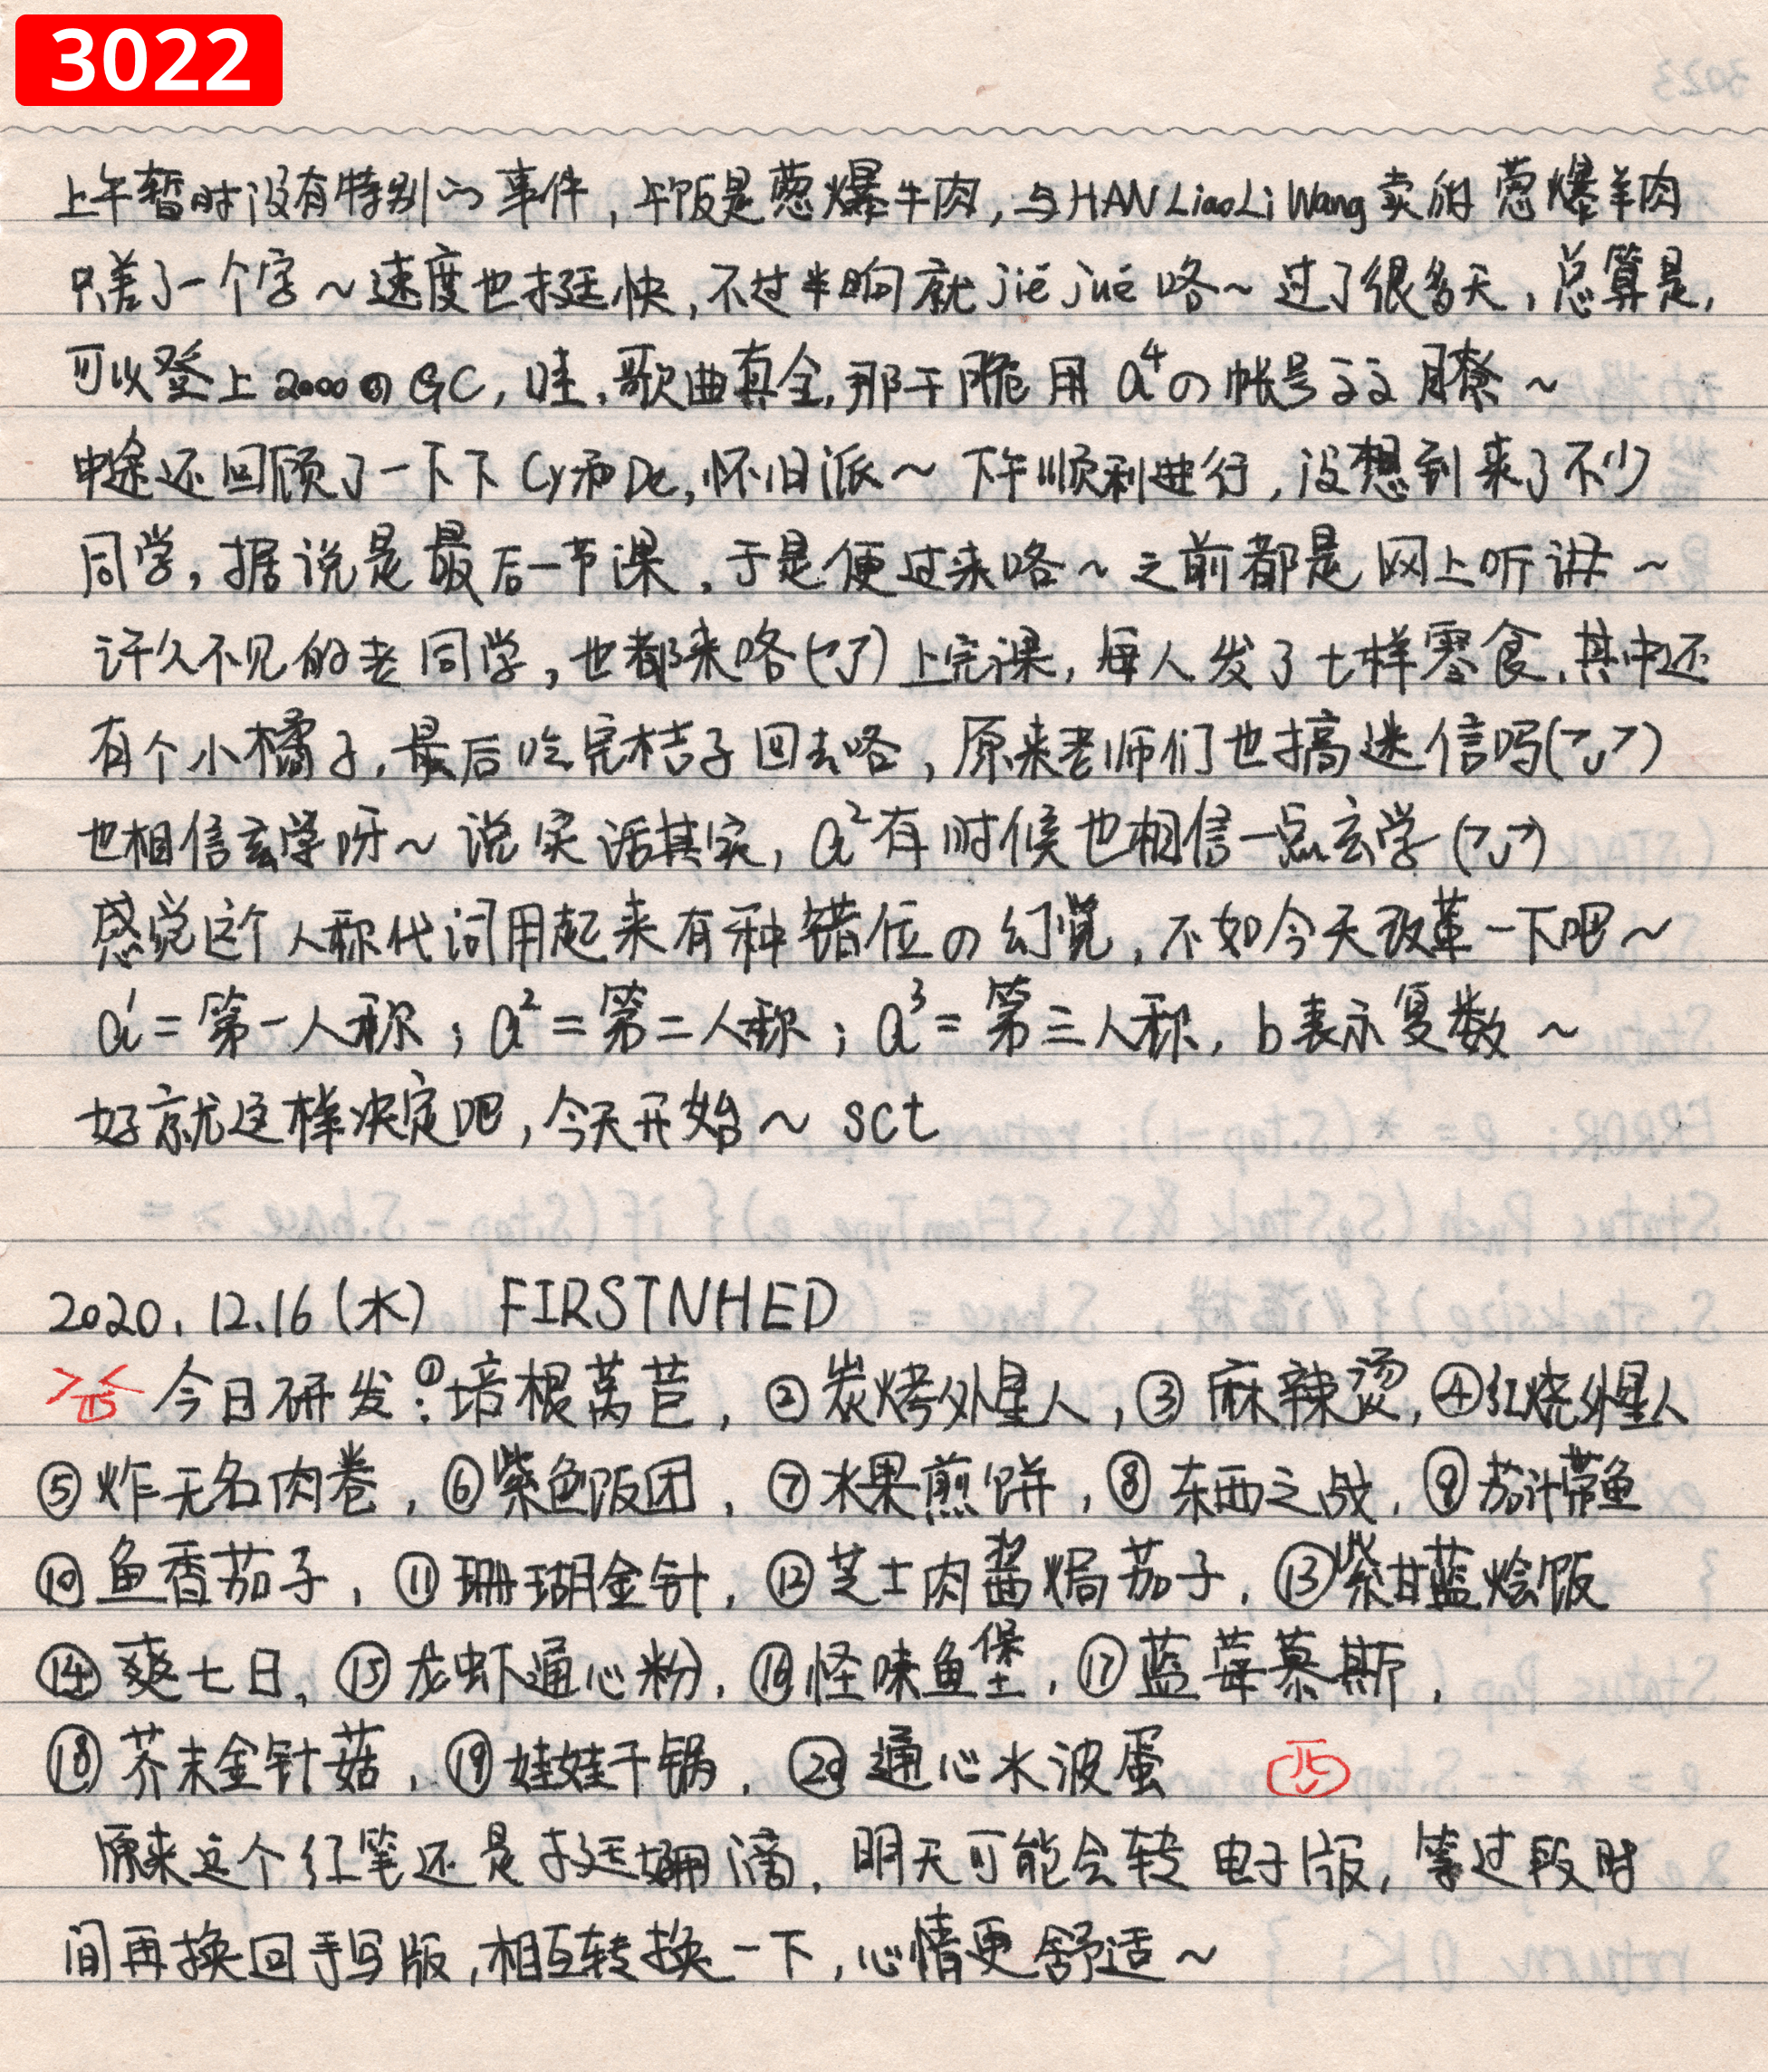 3022
上午暂时没有特别の事件，午饭是葱爆牛肉，与HAN LiaoLi Wang卖的葱爆羊肉
只差了一个字～速度也挺快，不过半晌就jiě jué咯～过了很多天，总算是，
可以登上2000の GC，哇，歌曲真全，那干脆用a⁴の帐号
中途还回顾了一下下Cy和De，怀旧派～下午顺利进行，没想到来了不少
同学，据说是最后一节课，于是便过来咯～之前都是网上听讲～
许久不见的老同学，也都来咯 上完课，每人发了七样零食，其中还
有个小橘子，最后吃完桔子回去咯，原来老师们也搞迷信吗
也相信玄学呀～说实话其实，a²有时候也相信一点玄学
感觉这个人称代词用起来有种错位の幻觉，不如今天改革一下吧～
a¹=第一人称；a²=第二人称；a³=第三人称，b表示复数～
好就这样决定吧，今天开始～ sct
2020.12.16(水) FIRSTNHED
今日研发：①培根莴苣，②炭烤外星人，③麻辣烫，④红烧外星人
⑤炸无名肉卷，⑥紫色饭团，⑦水果煎饼，⑧东西之战，⑨茄汁带鱼
⑩鱼香茄子，⑪珊瑚金针，⑫芝士肉酱焗茄子，⑬紫甘蓝烩饭
⑭爽七日，⑮龙虾通心粉，⑯怪味鱼堡，⑰蓝莓慕斯，
⑱芥末金针菇，⑲娃娃干锅，⑳通心水波蛋
原来这个红笔还是挺好用滴，明天可能会转电子版，等过段时
间再换回手写版，相互转换一下，心情更舒适～